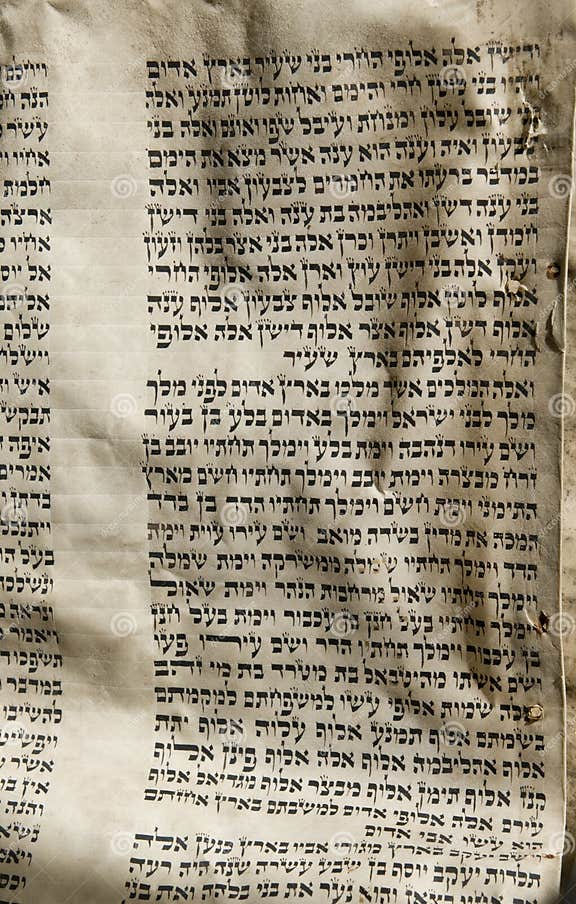 ודישן אלה אלופי החרי בני שעיר בארץ אדום
ויהיו בני לוטן חרי והימם ואחות לוטן תמנע ואלה
בני שובל עלון ומנחת ועיבל שפו ואונם ואלה בני
צבעון ואיה וענה הוא ענה אשר מצא את הימם
במדבר ברעתו את החמרים לצבעון אביו ואלה
בני ענה דשן ואהליבמה בת ענה ואלה בני דישן
חמדן ואשבן ויתרן וכרן אלה בני אצר בלהן וזעון
ועקן אלה בני דישן עוץ וארן אלה אלופי החרי
אלוף לוטן אלוף שובל אלוף צבעון אלוף ענה
אלוף דשן אלוף אצר אלוף דישן אלה אלופי
החרי לאלפיהם בארץ שעיר
ואלה המלכים אשר מלכו בארץ אדום לפני מלך
מלך לבני ישראל וימלך באדום בלע בן בעור
ושם עירו דנהבה וימת בלע וימלך תחתיו יובב בן
זרח מבצרה וימת יובב וימלך תחתיו חשם מארץ
התימני וימת חשם וימלך תחתיו הדד בן בדד
המכה את מדין בשדה מואב ושם עירו עוית וימת
הדד וימלך תחתיו שמלה ממשרקה וימת שמלה
וימלך תחתיו שאול מרחבות הנהר וימת שאול
וימלך תחתיו בעל חנן בן עכבור וימת בעל חנן
בן עכבור וימלך תחתיו הדר ושם עירו פעו
ושם אשתו מהיטבאל בת מטרד בת מי זהב
ואלה שמות אלופי עשו למשפחתם למקמתם
בשמתם אלוף תמנע אלוף עלוה אלוף יתת
אלוף אהליבמה אלוף אלה אלוף פינן אלוף
קנז אלוף תימן אלוף מבצר אלוף מגדיאל אלוף
עירם אלה אלופי אדום למשבתם בארץ אחזתם
הוא עשו אבי אדום
וישב יעקב בארץ מגורי אביו בארץ כנען אלה
תלדות יעקב יוסף בן שבע עשרה שנה היה רעה
את אחיו בצאן והוא נער את בני בלהה ואת בני
הנה
עשר
אחיו
ארצה
אחיו
אל
אליהם
שלום
איש
איפה
אמרים
בעל
ויאמר
תשפכו
אשר
אין
והנה